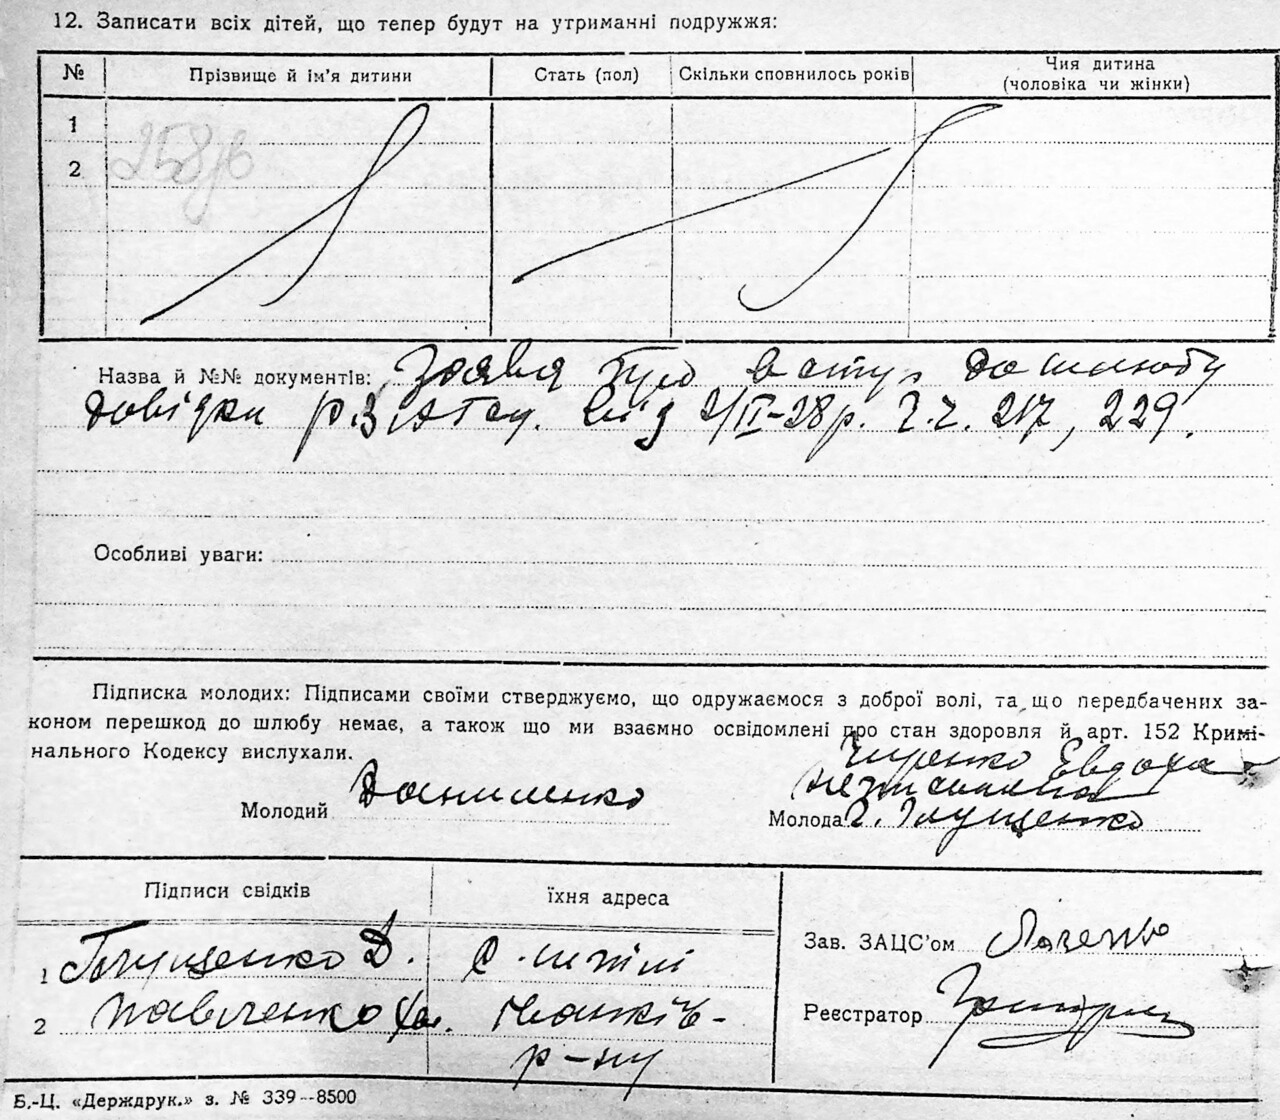 12. Записати всіх дітей, що тепер будут на утриманні подружжя:
№ Прізвище й ім'я дитини Стать (пол) Скільки сповнилось років Чия дитина (чоловіка чи жінки)
1
2
Назва й №№ документів: Заява про вступ до шлюбу
довідки від 2/II-28р. ч.ч. 217, 229.
Особливі уваги:
Підписка молодих: Підписами своїми стверджуємо, що одружаємося з доброї волі, та що передбачених за-
коном перешкод до шлюбу немає, а також що ми взаємно освідомлені про стан здоровля й арт. 152 Кримі-
нального Кодексу вислухали.
Молодий Даниленко
Евдоха
неписьмена
Молода Глущенко
Підписи свідків їхня адреса
1 Глущенко Д. с.
2 Павленко
р-ну
Зав. ЗАЦС'ом
Реєстратор
Б.-Ц. «Держдрук.» з. № 339--8500